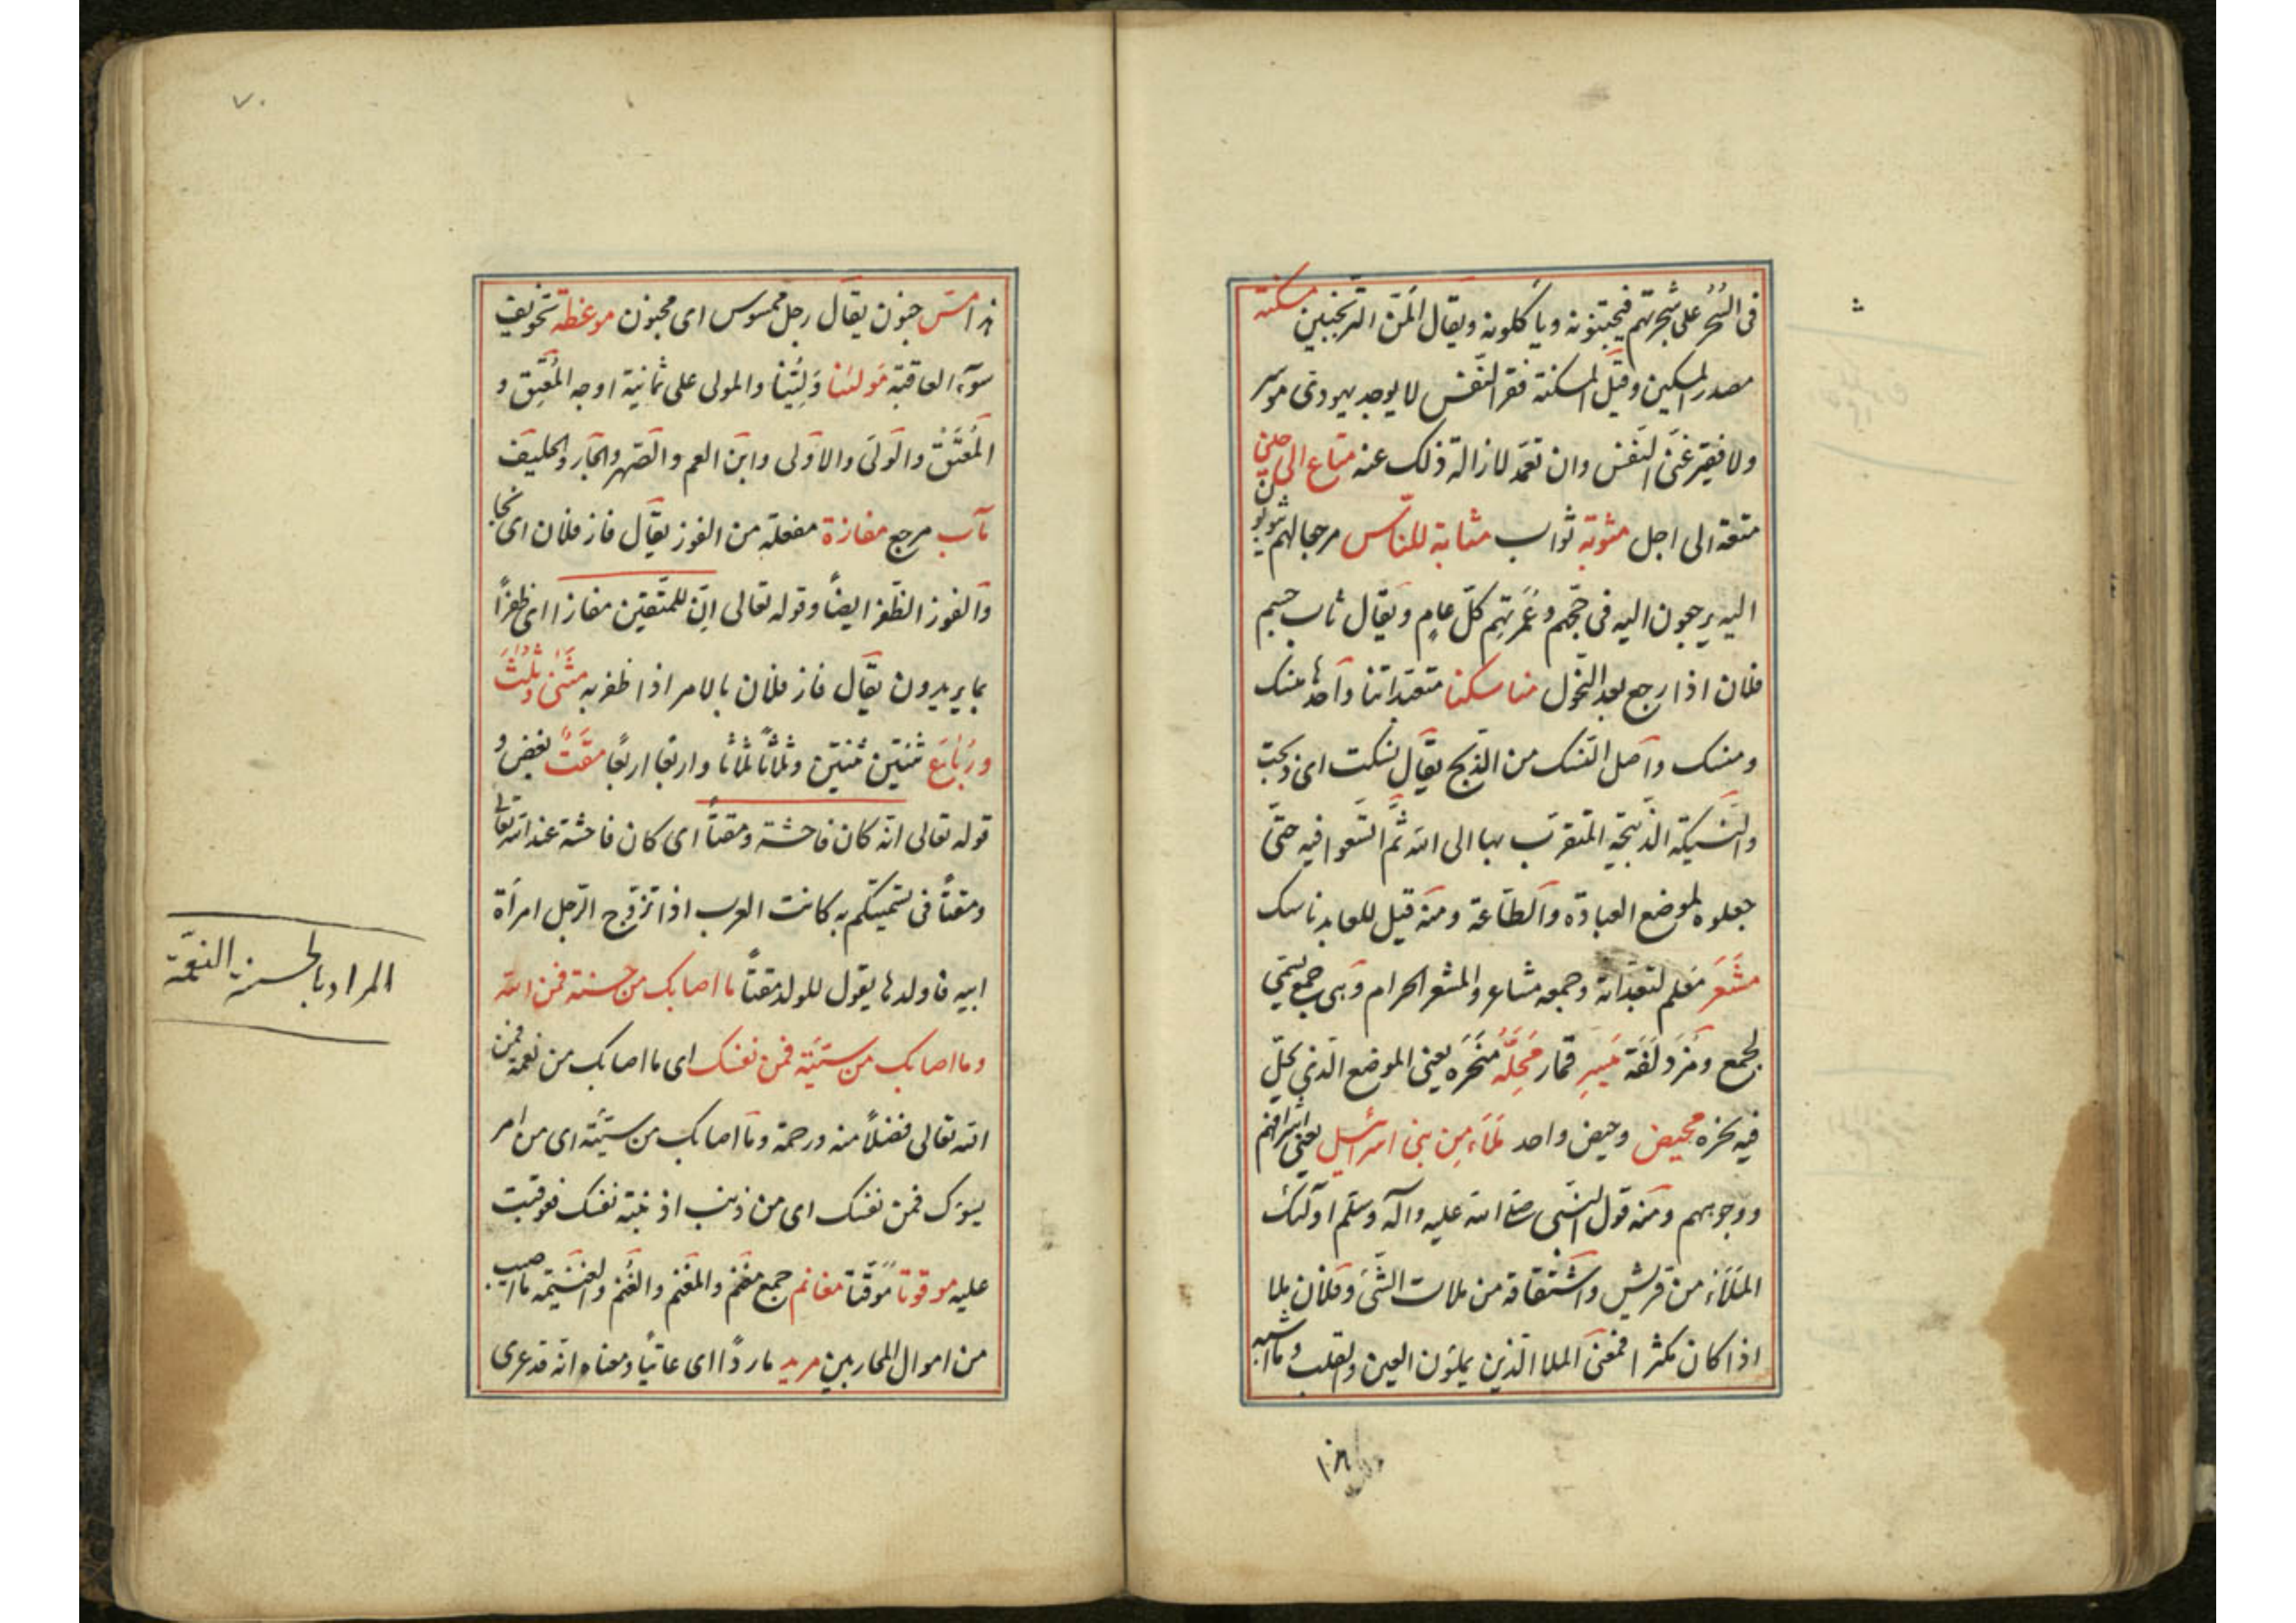 فى السَّحَر على شجرتهم فيجتنونه ويأكلونه ويقال المنّ الترنجبين مسكنة
مصدر المسكين وقيل المسكنة فقر النّفس لا يوجد يهودى موسر
ولا فقير غنىّ النّفس وان تعمّد لازالة ذلك عنه متاع الى حين
متعة الى اجل مثوبة ثواب مثابة للنّاس مرجعا لهم يثوبون
اليه يرجعون اليه فى حجّهم وعُمرتهم كلّ عامٍ ويقال ثاب جسم
فلان اذا رجع بعد النّحول مناسكنا متعبّداتنا واحدها منسك
ومنسك واصل النّسك من الذّبح يقال نسكت اى ذبحت
والنّسيكة الذّبيحة المتقرّب بها الى الله ثمّ اتّسعوا فيه حتّى
جعلوه لموضع العبادة والطّاعة ومنه قيل للعابد ناسك
مَشعَر مَعلم لتعبّداته وجمعه مشاعر والمشعر الحرام وهى جمع يسمّى
بجمع ومُزدَلَفَة مَيسِر قمار مَحِلَّهُ مَنحَرَه يعنى الموضع الّذى يحلّ
فيه نحره محيض وحيض واحد مَلَاءِ مِن بنى اسرائيل يعنى اشرافهم
ووجوههم ومنه قول النّبى صلى الله عليه وآله وسلّم اولئك
المَلَاءُ من قريش واشتقاقه من ملات الشّئ وفلان ملا
اذا كان مكثرا فمعنى الملا الّذين يملؤن العين والقلب وما اشبه
هذا مسّ جنون يقال رجل ممسوس اى مجنون موعظة تخويف
سوء العاقبة مَولٰنا وَلِيّنا والمولى على ثمانية اوجه المُعتِق و
المُعتَق والولىّ والاولى وابن العم والصّهر والجار والحليف
مآب مرجع مفازة مفعلة من الفوز يقال فاز فلان اى نجا
والفوز الظّفر ايضاً وقوله تعالى انّ للمتّقين مفازا اى ظفراً
بما يريدون يقال فاز فلان بالامر اذا ظفر به مَثنٰى وثُلٰثَ
ورُبٰعَ ثنتين ثنتين وثلاثاً ثلاثا واربعا اربعاً مقتٌ بغض و
قوله تعالى انّه كان فاحشة ومقتاً اى كان فاحشة عند الله تعالى
ومقتاً فى تسميتكم به كانت العرب اذا تزوّج الرّجل امرأة
ابيه فاولدها يقول للولد مقتاً ما اصابك من حسنة فمن الله
وما اصابك من سيّئة فمن نفسك اى ما اصابك من نعمة فمن
الله تعالى فضلاً منه ورحمة وما اصابك من سيّئة اى من امر
يسوءك فمن نفسك اى من ذنب اذنبته نفسك فعوقبت
عليه موقوتا مُوَقّتا مغانم جمع مغنم والمغنم والغُنم والغنيمة ما اصيب
من اموال المحاربين مريد ماردًا اى عاتياً ومعناه انّه قد عرى
المراد بالحسنة النعمة
٧٠